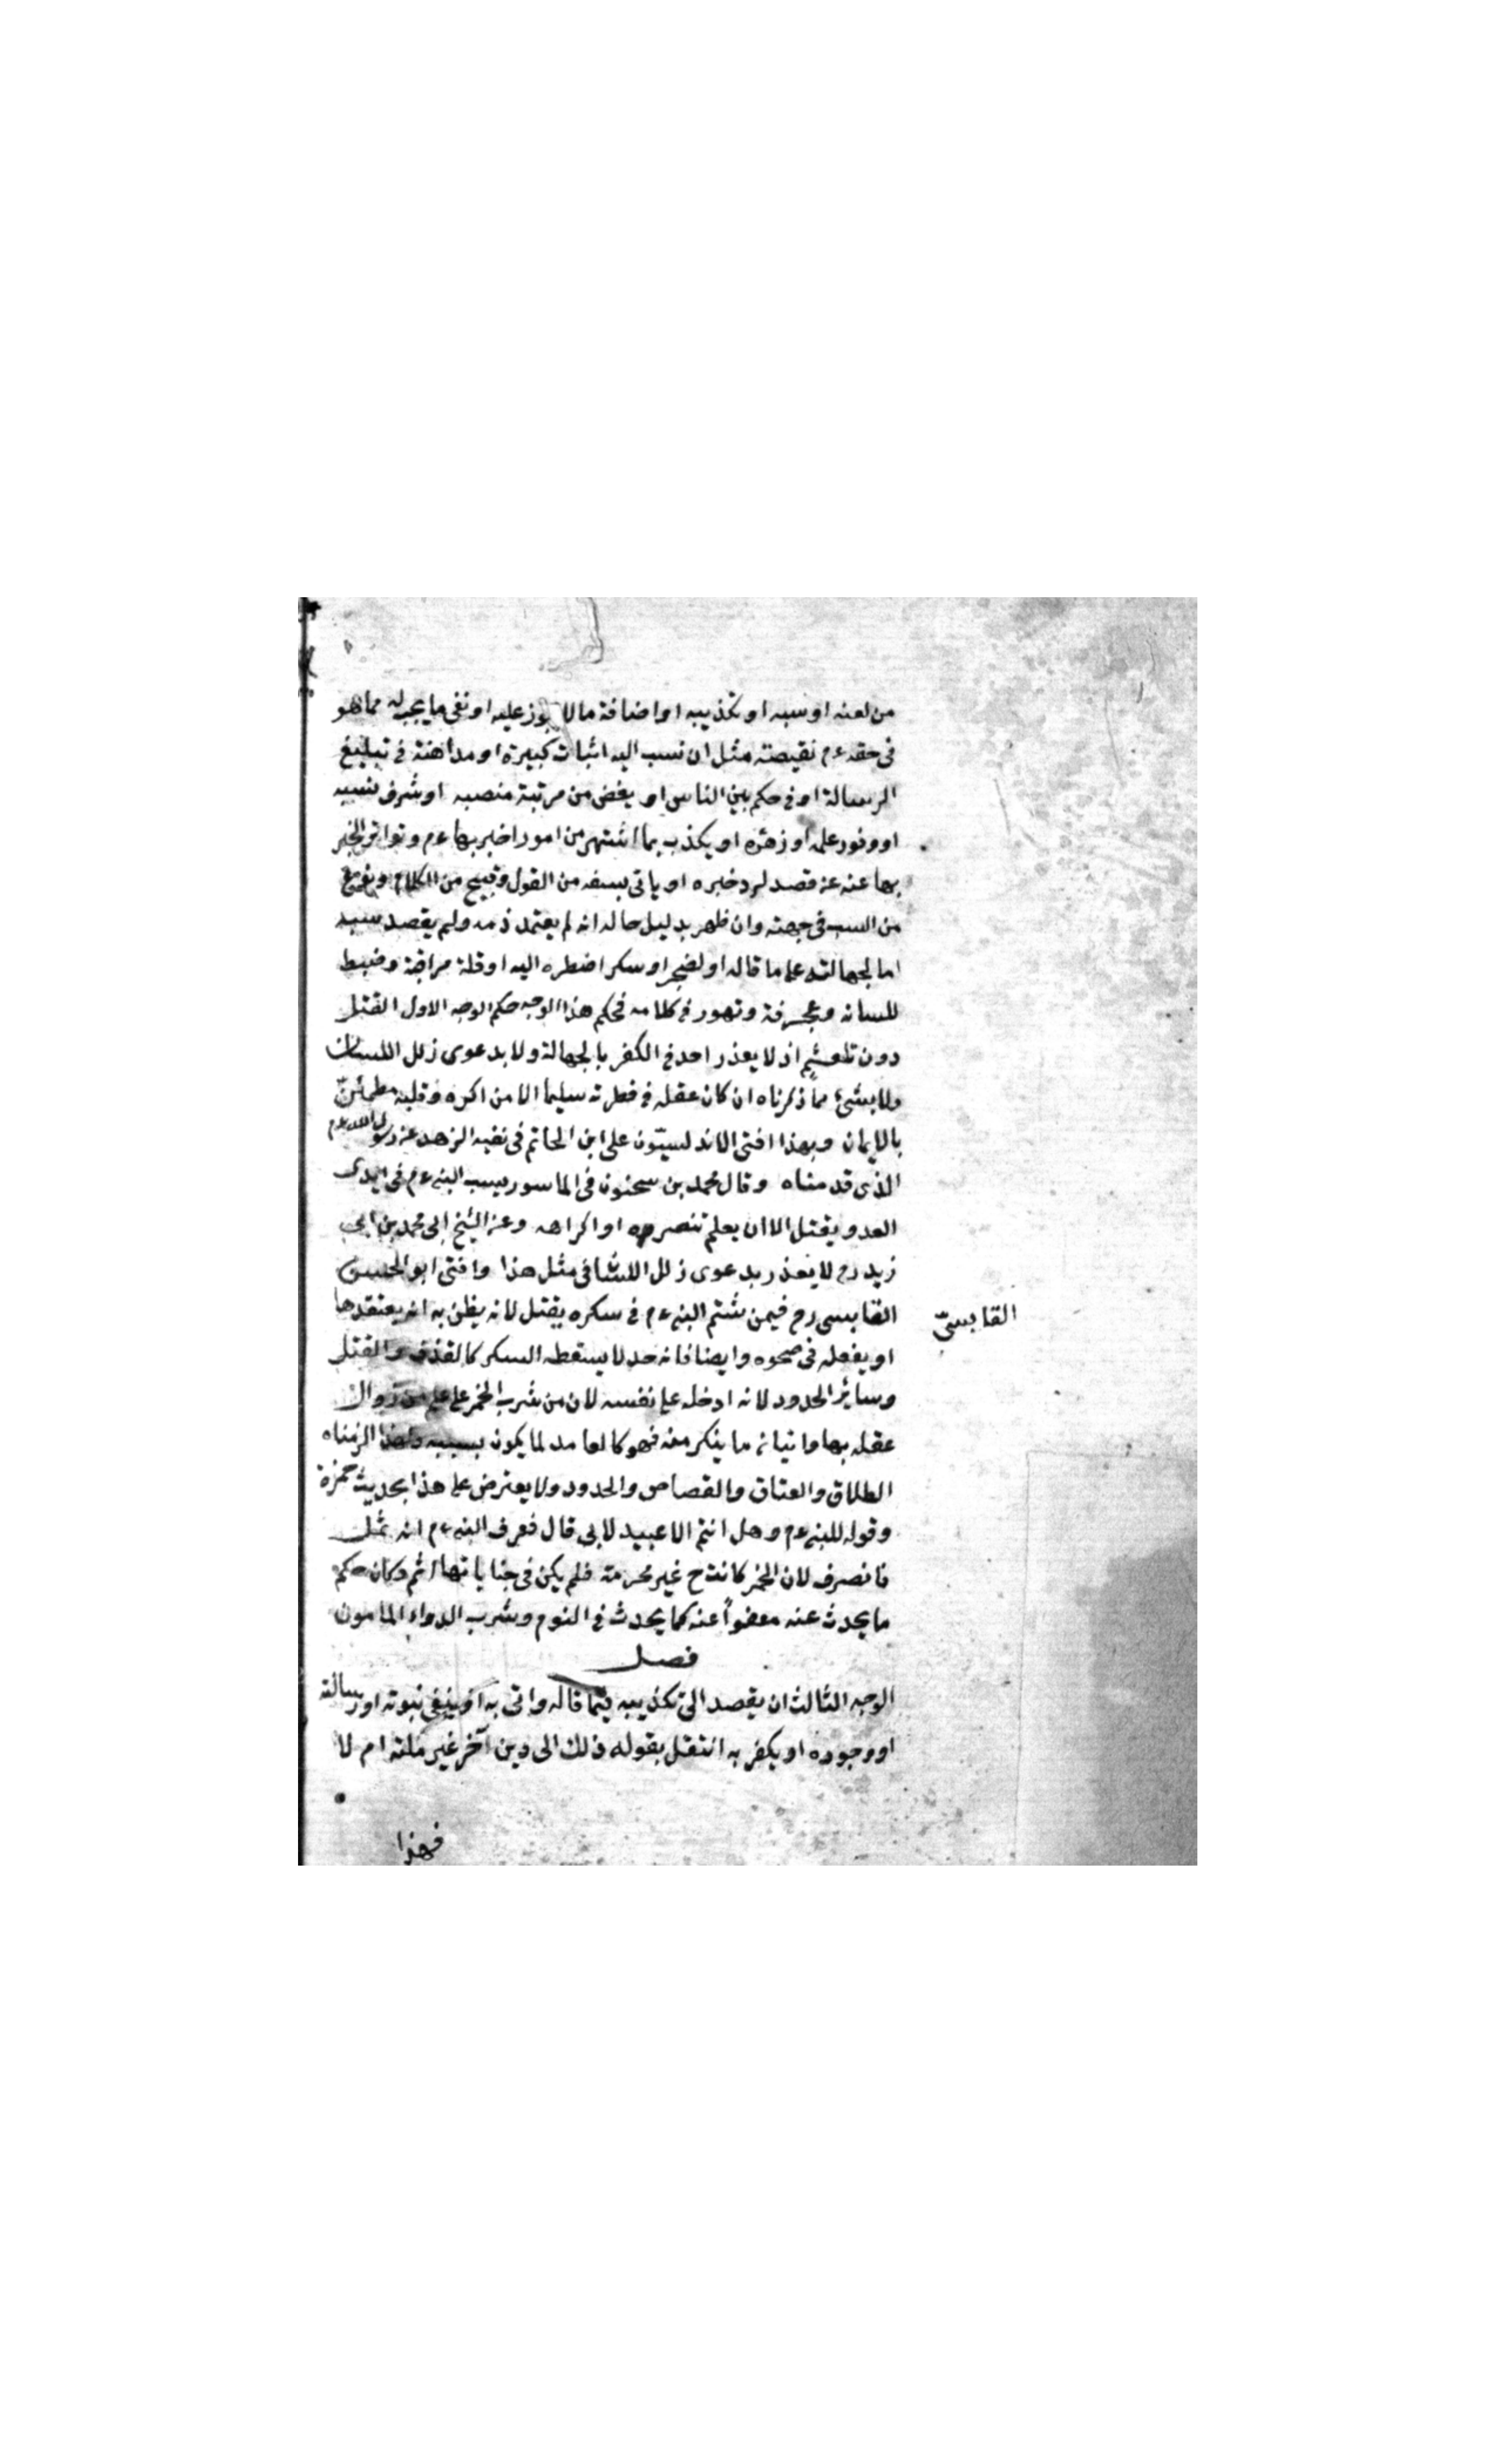 من لعنه او سبه او تكذيبه او اضافة ما لا يجوز عليه او نفى ما يجب له مما هو
فى حقه ءم نقيصته مثل ان نسب اليه اثبات كبيرة او مداهنة فى تبليغ
الرسالة او فى حكم بين الناس او يغض من مرتبة منصبه او شرف نسبه
او وفور علمه او زهده او يكذب بما اشتهر من امور اخبر بها ءم وتواتر الخبر
بها عنه عن قصد لرد خبره او ياتى بسفه من القول وقبيح من الكلام ونوع
من السب فى جهته وان ظهر بدليل حاله انه لم يعتمد ذمه ولم يقصد سبه
اما لجهالته على ما قاله او لضجر او سكر اضطره اليه او قلة مراقبة وضبط
للسانه وعجرفة وتهور فى كلامه فحكم هذا الوجه حكم الوجه الاول القتل
دون تلعثم اذ لا يعذر احد فى الكفر بالجهالة ولا بدعوى زلل اللسان
ولا بشئ مما ذكرناه ان كان عقله فى فطرته سليما الا من اكره وقلبه مطمئنّ
بالايمان وبهذا افتى الاندلسيّون على ابن الحاتم فى نفيه الزهد عن رسول الله ءم
الذى قدمناه وقال محمد بن سحنون فى الماسور يسب النبى ءم فى ايدى
العدو يقتل الا ان يعلم تنصره او اكراهه وعن الشيخ ابى محمد بن ابى
زيد رح لا يعذر بدعوى زلل اللسان فى مثل هذا وافتى ابو الحسن
القابسى رح فيمن شتم النبى ءم فى سكره يقتل لانه يظن به انه يعتقد هذا
القابسىّ
او يفعله فى صحوه وايضا فانه حد لا يسقطه السكر كالقذف والقتل
وسائر الحدود لانه ادخله على نفسه لان من شرب الخمر على علم من زوال
عقله بها واتيان ما ينكر منه فهو كالعامد لما يكون بسببه ولهذا الزمناه
الطلاق والعتاق والقصاص والحدود ولا يعترض على هذا بحديث حمزة
وقوله للنبى ءم وهل انتم الا عبيد لابى قال فعرف النبى ءم انه ثمل
فانصرف لان الخمر كانت ح غير محرمة فلم يكن فى جناياتها اثم وكان حكم
ما يحدث عنه معفواً عنه كما يحدث فى النوم وشرب الدواء المامون
فصل
الوجه الثالث ان يقصد الى تكذيبه فيما قاله واتى به او ينفى نبوته او رسالته
او وجوده او يكفر به انتقل بقوله ذلك الى دين آخر غير ملته ام لا
فهذا